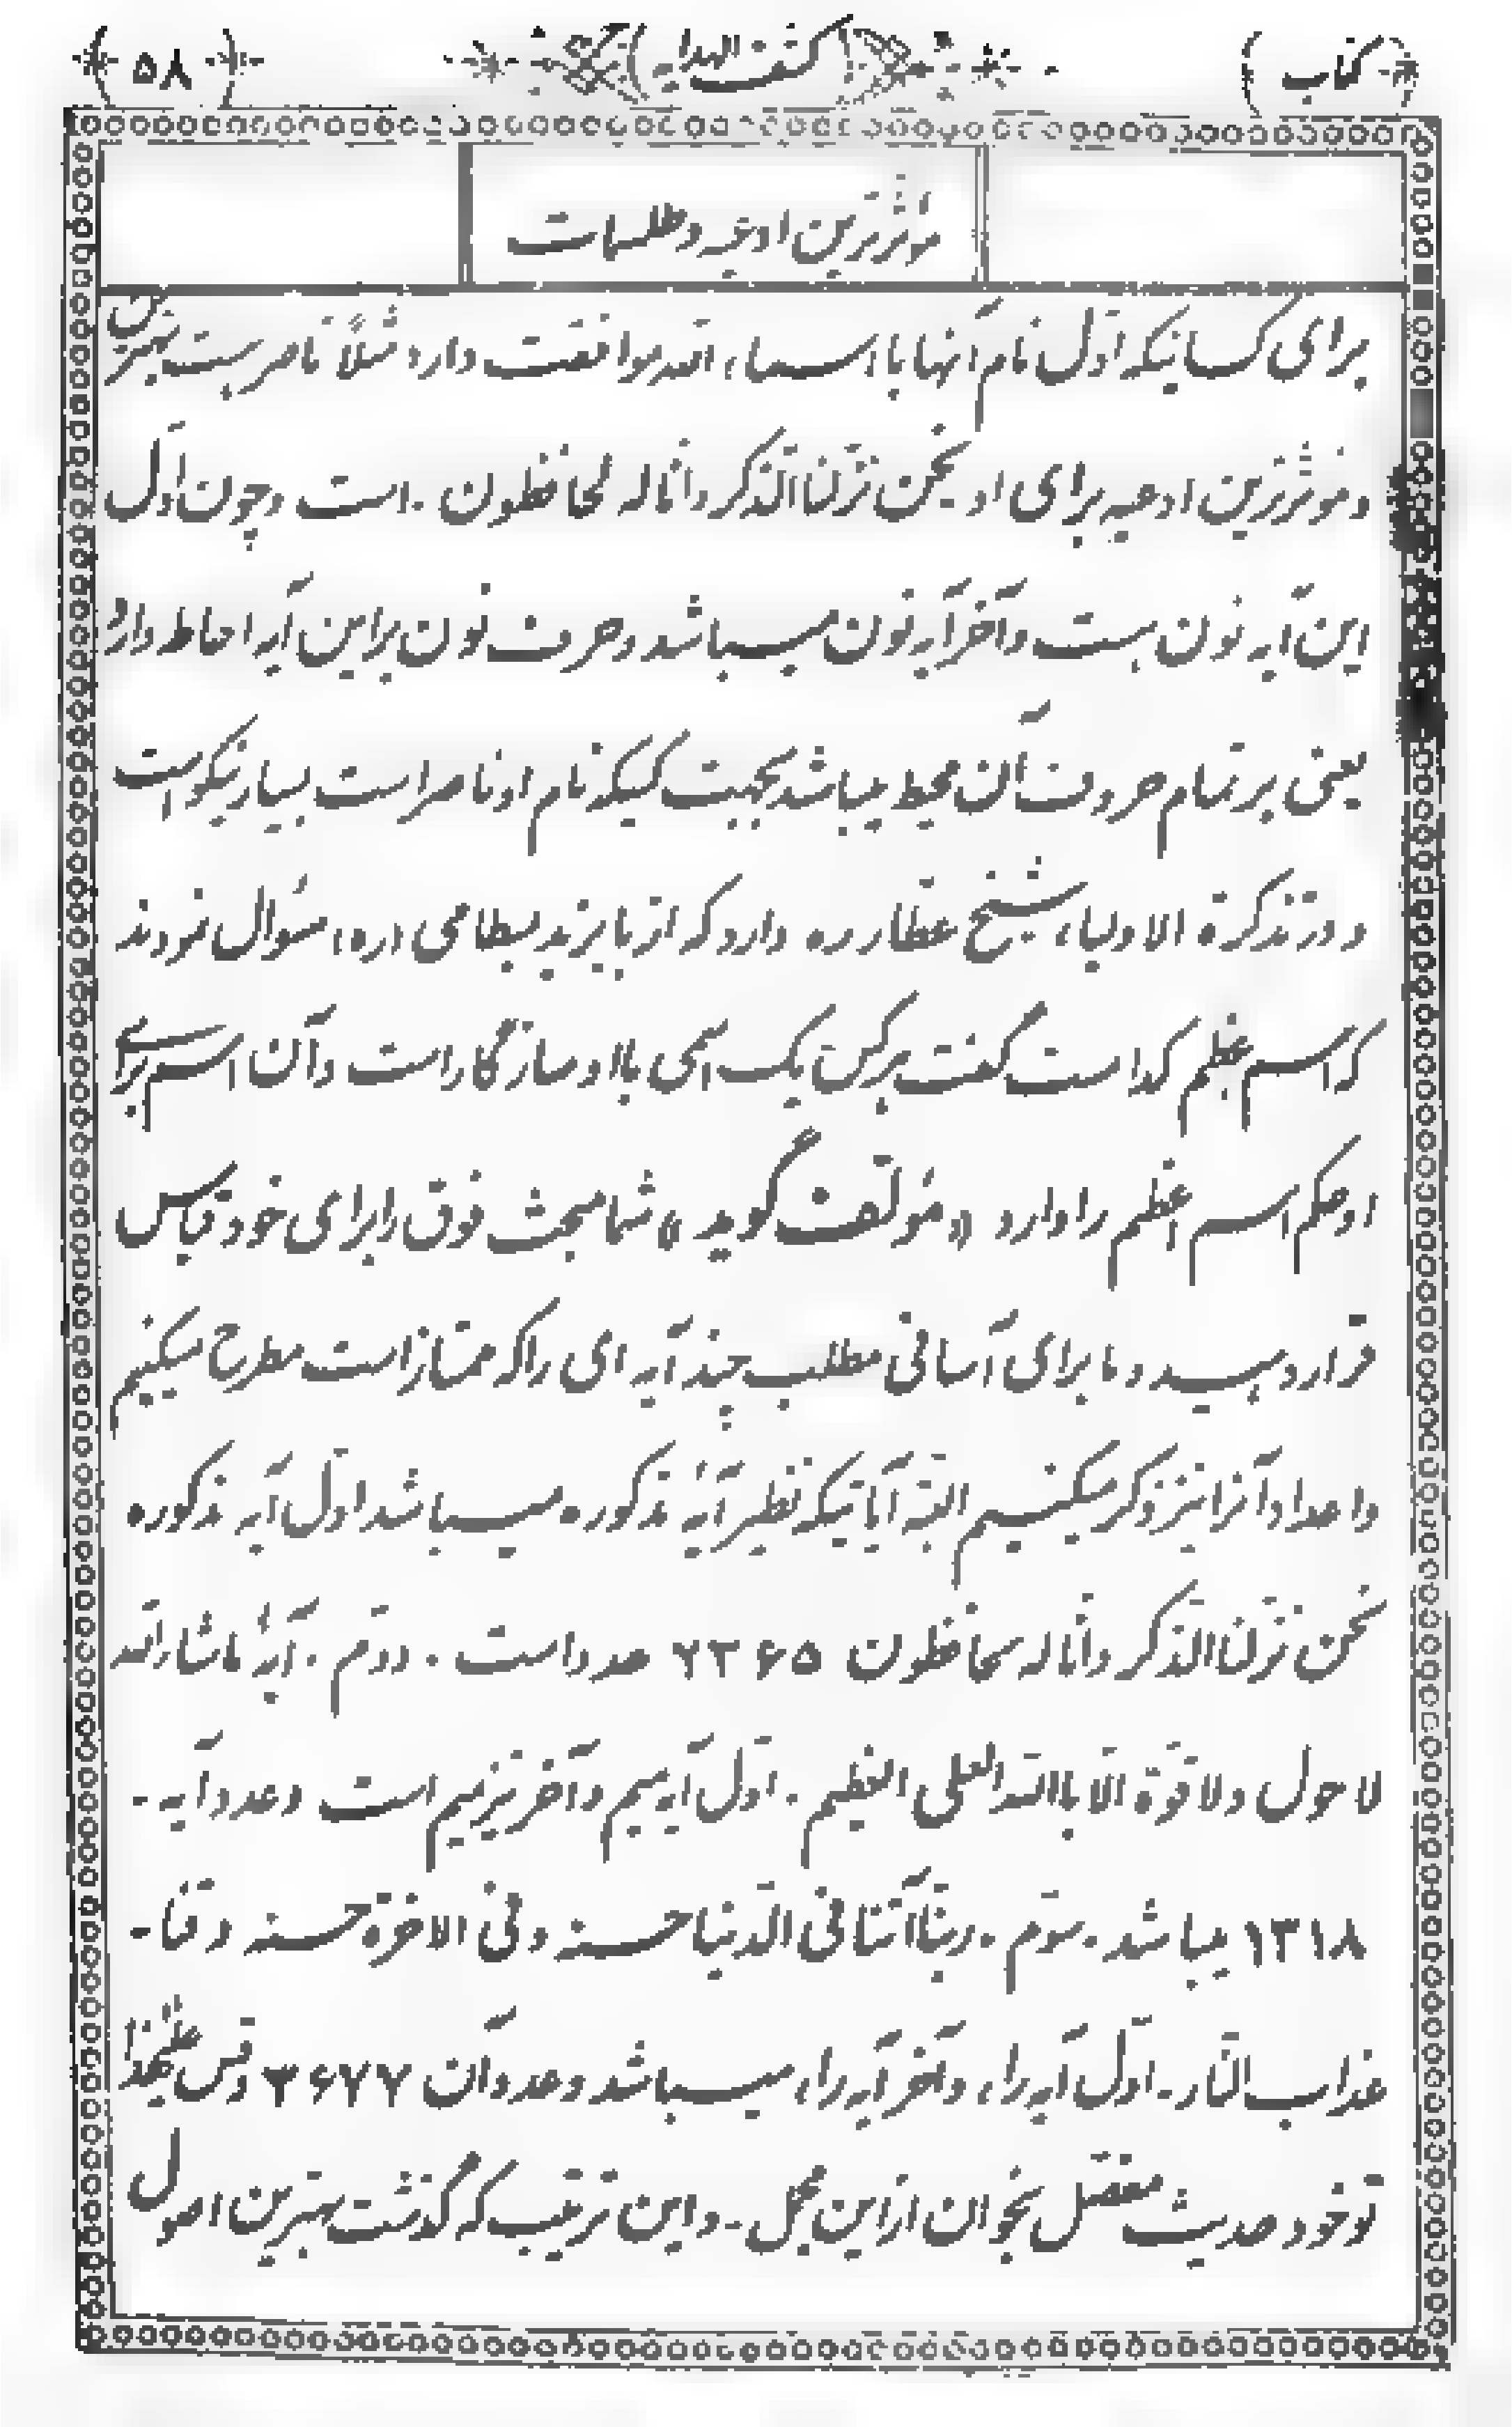 کتاب
کشف الهدایه
۵۸
مؤثرترین ادعیه و طلسمات
برای کسانیکه اول نام آنها با اسماء الله موافقت دارد مثلاً ناصر است بهترین
و مؤثرترین ادعیه برای او نحن نزلنا الذکر و انا له لحافظون . است و چون اول
این آیه نون هست و آخر آیه نون میباشد و حرف نون بر این آیه احاطه دارد
یعنی بر تمام حروف آن محیط میباشد بجهت کسیکه نام او ناصر است بسیار نیکو است
و در تذکرة الاولیاء شیخ عطار ره دارد که از بایزید بسطامی (ره) سئوال نمودند
که اسم عظیم کدا است گفت هر کس یک اسمی با او سازگار است و آن اسم برای
او حکم اسم اعظم را دارد «مؤلف گوید» شما مبحث فوق را برای خود قیاس
قرار دهید و ما برای آسانی مطلب چند آیه ای را که ممتاز است مطرح میکنیم
و اعداد آنرا نیز ذکر میکنیم البته آیاتیکه نظیر آیهٔ مذکوره میباشد اول آیه مذکوره
نحن نزلنا الذکر و انا له لحافظون ۲۳۶۵ عدد است . دوم . آیهٔ ماشاء الله
لا حول ولا قوة الا باالله العلی العظیم . اول آیه میم و آخر نیز میم است و عدد آیه -
۱۳۱۸ میباشد . سوم . ربنا آتنا فی الدنیا حسنه و فی الاخرة حسنه و قنا -
عذاب النار - اول آیه راء و آخر آیه راء میباشد و عدد آن ۳۶۷۷ و قس علیهذا
تو خود حدیث مفصل بخوان از این مجمل - و این ترتیب که گذشت بهترین اصول